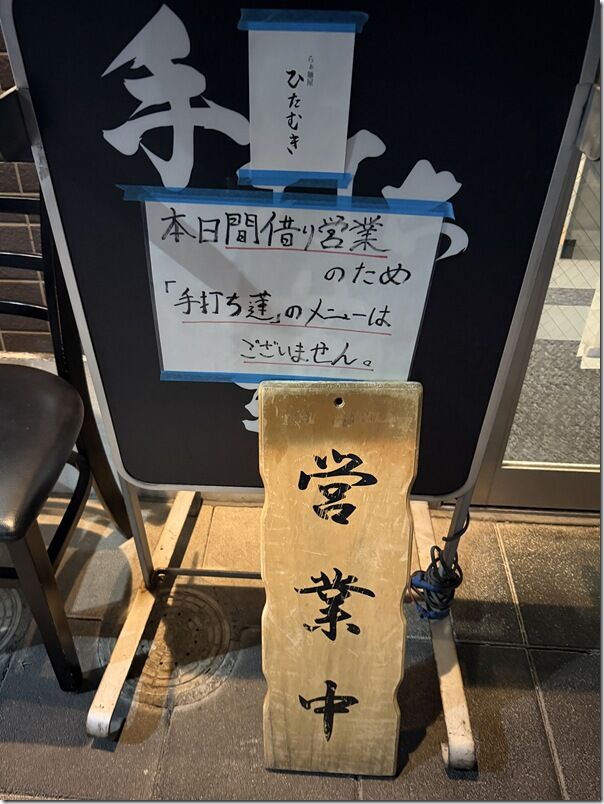 手打ち
らぁ麺屋
ひたむき
本日間借り営業
のため
「手打ち蓮」のメニューは
ございません。
営業中